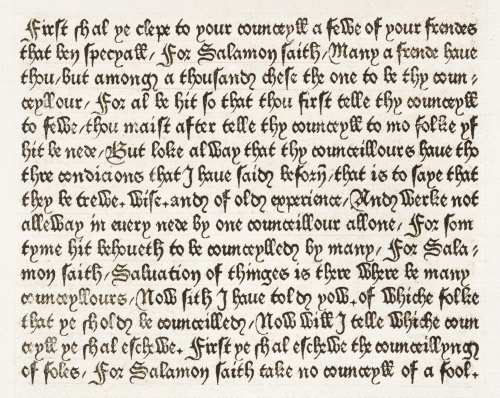 First shal ye clepe to your counceyll a fewe of your frendes
that ben specyall / For Salamon saith / Many a frende have
thou / but among a thousand chese the one to be thy coun-
ceyllour / For al be hit so that thou first telle thy counceyll
to fewe / thou maist after telle thy counceyll to mo folke yf
hit be nede / But loke alway that thy councillours have tho
thre condicions that I have said beforn / that is to saye that
they be trewe. wise. and of old experience / And werke not
alleway in every nede by one councillour allone / For som
tyme hit behoueth to be counceylled by many / For Sala-
mon saith / Saluation of thinges is there where be many
counceyllours / Now sith I have told yow. of whiche folke
that ye shold be councilled / Now will I telle whiche coun
ceyll ye shal eschewe. First ye shal eschewe the councillyng
of foles / For Salamon saith take no counceyll of a fool.